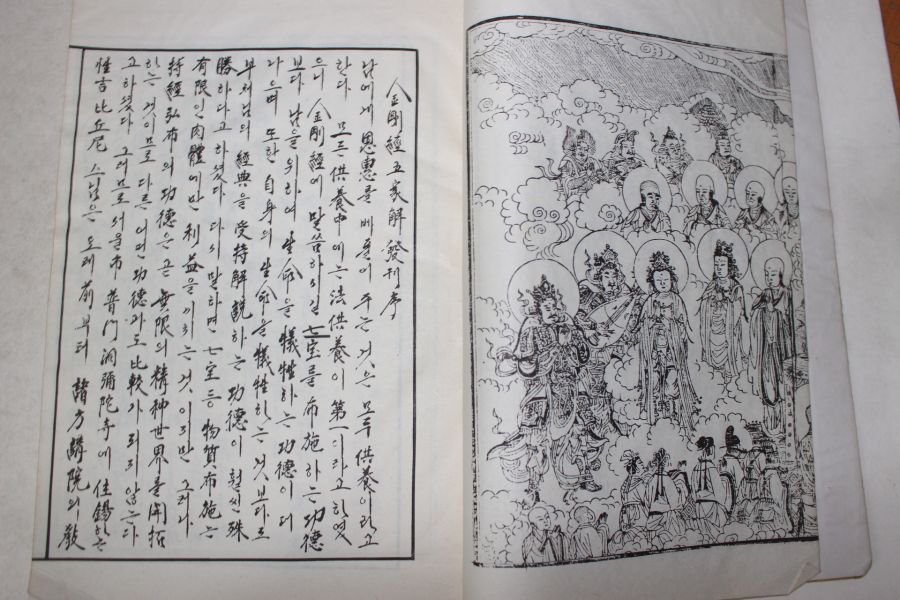 金剛經五家解發刊序
남에게 恩惠를 베풀어 주는 것은 모두 供養이라고
한다 모든 供養中에는 法供養이 第一이라고 하였
으니 金剛經에 말씀하시길 七宝를 布施하는 功德
보다 남을 위하여 生命을 犧牲하는 功德이 더
나으며 또한 自身의 生命을 犧牲하는 것보다도
부처님의 經典을 受持解説하는 功德이 훨씬 殊
勝하다고 하셨다 다시 말하면 七宝等 物質布施는
有限인 肉體에만 利益을 이루는 것이지만 그러나
持經弘布의 功德은 곧 無限의 精神世界를 開拓
하는 것이므로 다른 어떤 功德과도 比較가 되지 않는다
고 하셨다 그러므로 서울市 普門洞彌陀寺에 住錫하는
比丘尼 스님은 오래 前부터 諸方講院의